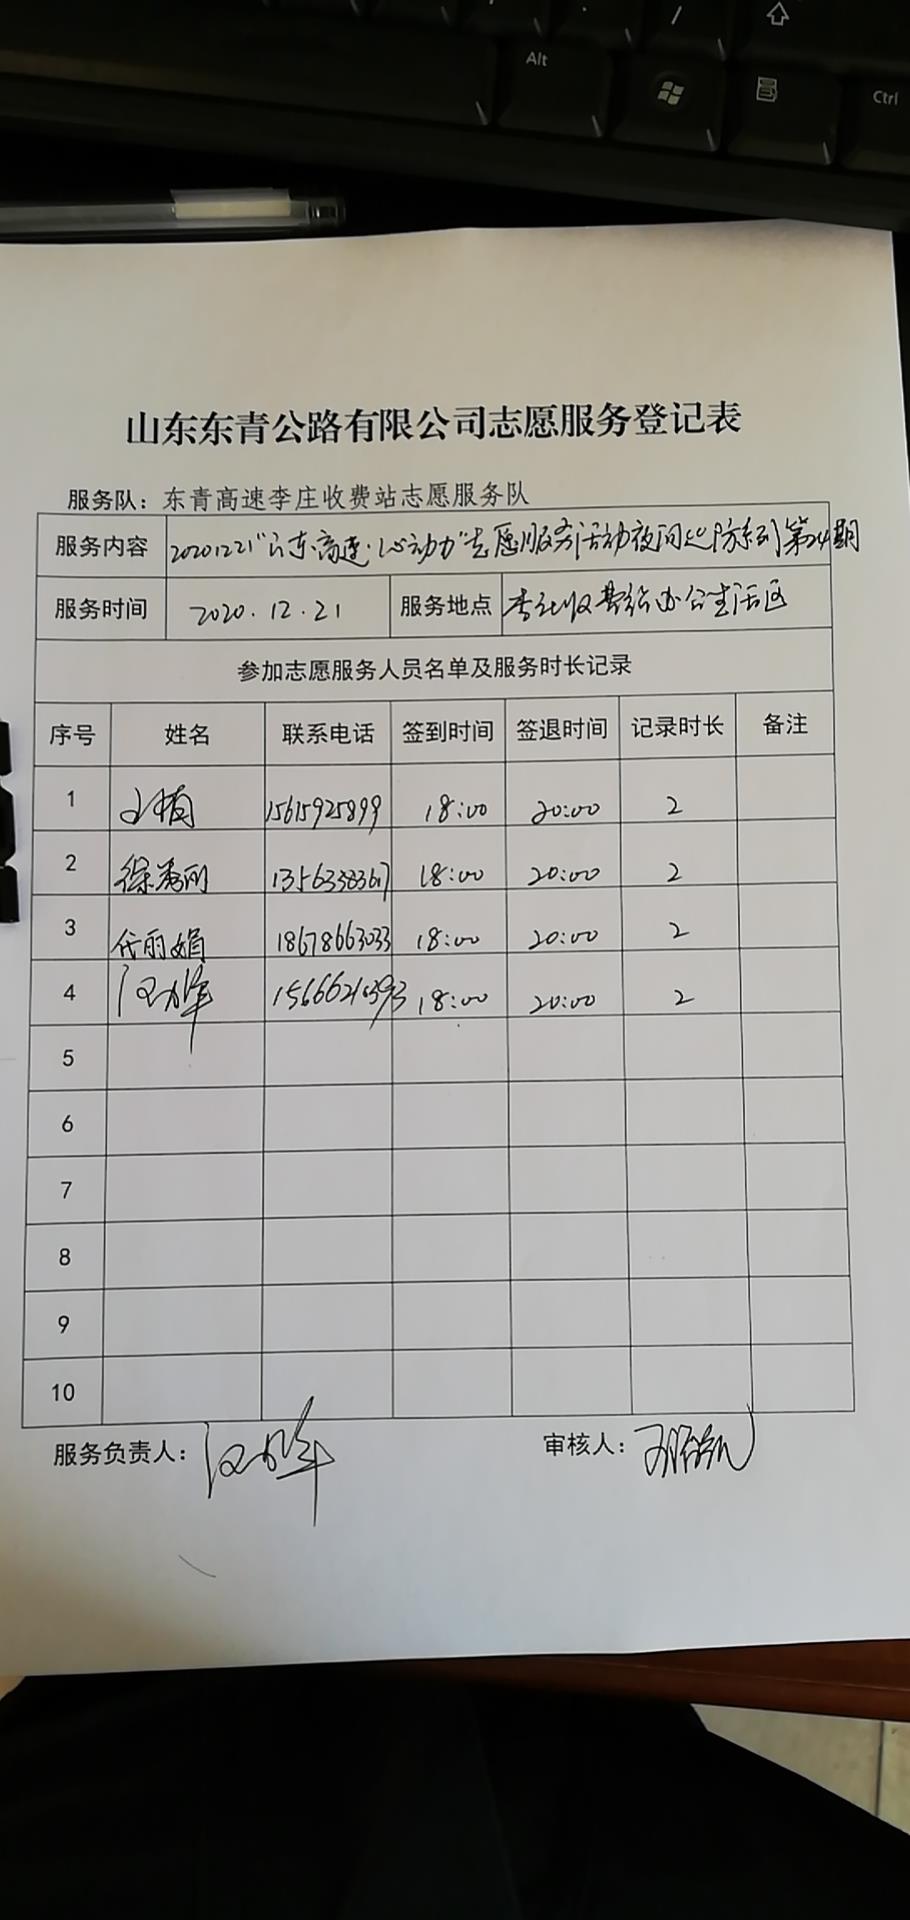 Alt
Ctrl
山东东青公路有限公司志愿服务登记表
服务队：东青高速李庄收费站志愿服务队
服务内容 20201221"山东高速·心动力"志愿服务活动夜间巡防系列第24期
服务时间 2020.12.21 服务地点 李庄收费站办公生活区
参加志愿服务人员名单及服务时长记录
序号 姓名 联系电话 签到时间 签退时间 记录时长 备注
1 15615925899 18:00 20:00 2
2 徐秀丽 13563383617 18:00 20:00 2
3 代丽娟 18678663033 18:00 20:00 2
4 18:00 20:00 2
5
6
7
8
9
10
服务负责人： 审核人：